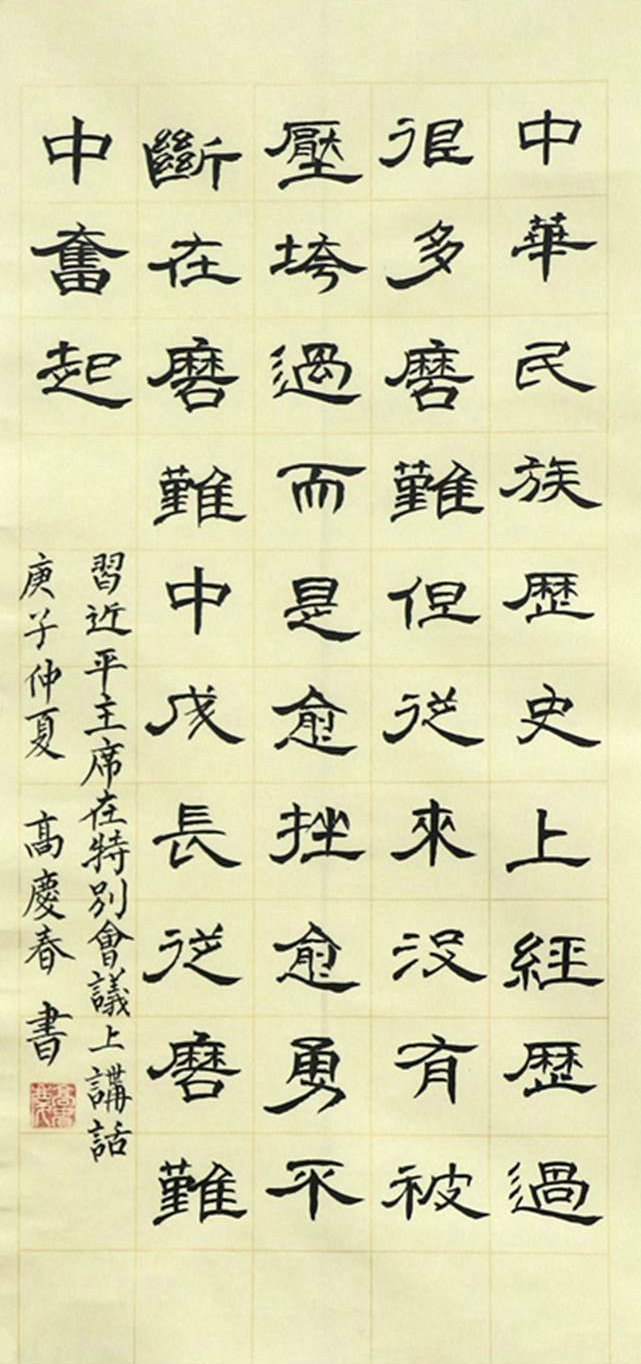 中華民族歷史上經歷過
很多磨難但從來沒有被
壓垮過而是愈挫愈勇不
斷在磨難中成長從磨難
中奮起
習近平主席在特別會議上講話
庚子仲夏 高慶春 書